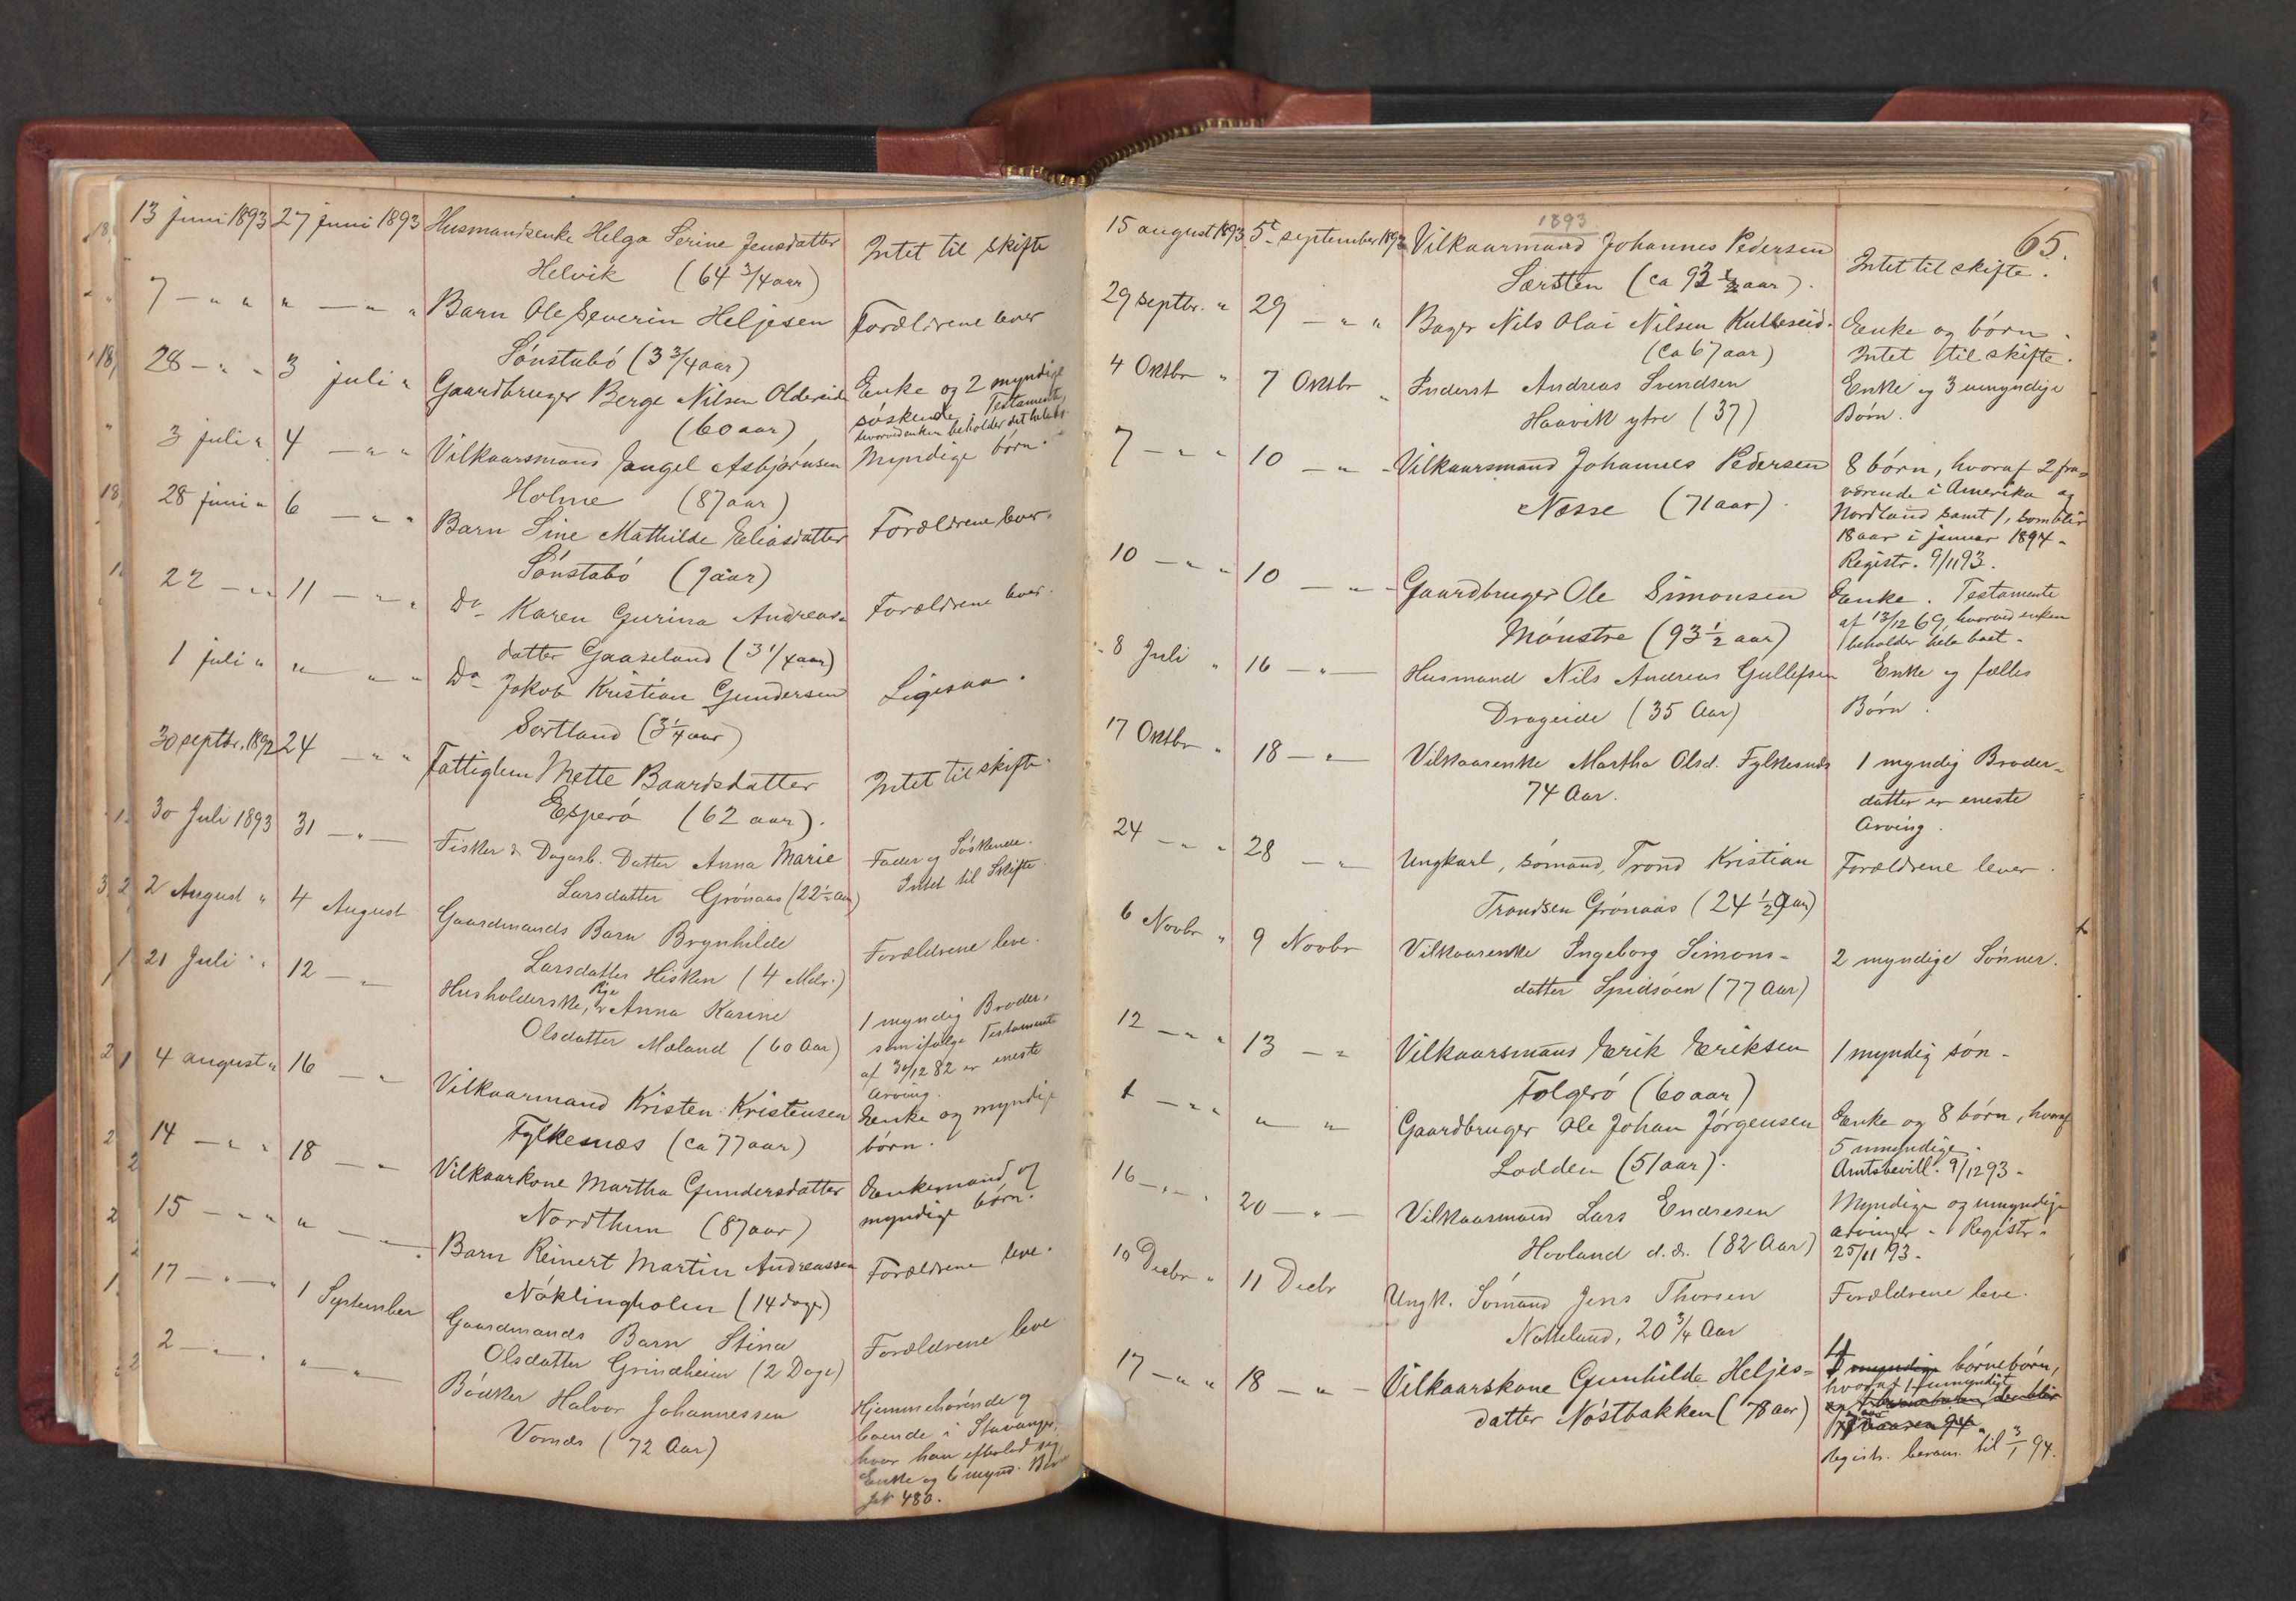 13 juni 1893 27 juni 1893 Husmandsenke Helga Serine Jensdatter Intet til skifte
Helvik (64 3/4 aar)
7 — " " " — " " Barn Ole Severin Heljesen Forældrene lever
Sönstabö (3 3/4 aar)
28 — " " 3 juli " Gaardbruger Berge Nilsen Oldereide Enke og 2 myndige
(60 aar) söskende; Testamente,
hvorved enken beholder det hele bo.
3 juli " 4 — " " Vilkaarsmand Jangel Asbjörnsen Myndige börn.
Holme (87 aar)
28 juni " 6 — " " Barn Sine Mathilde Eliasdatter Forældrene lever.
Sönstabö (9 aar)
22 — " " 11 — " " Do Karen Gurina Andreas- Forældrene lever.
datter Gaaseland (3 1/4 aar)
1 juli " " " " Do Jakob Kristian Gundersen Ligesaa.
Sortland (3 1/4 aar)
30 septbr. 1892 24 — " " Fattiglem Mette Baardsdatter Intet til skifte.
Esperö (62 aar).
30 Juli 1893 31 — " — Fisker & Dagarb. Datter Anna Marie Fader og Söskende.
Larsdatter Grönaas (22 1/2 aar) Intet til Skifte.
2 August " 4 August Gaardmands Barn Brynhilde Forældrene leve.
Larsdatter Hisken (4 Mdr.)
21 Juli " 12 — " Husholderske, Pige Anna Karine 1 myndig Broder,
Olsdatter Mæland (60 Aar) som ifölge Testamente
af 30/12 82 er eneste
Arving.
4 august " 16 — " Vilkaarmand Kristen Kristensen Enke og myndige
Fylkesnæs (ca 77 aar) börn.
14 — " " 18 — " Vilkaarkone Martha Gundersdatter Enkemand og
Nordthun (87 aar) myndige börn.
15 — " " " — " Barn Reinert Martin Andreassen Forældrene leve.
Nöklingholm (14 dage)
17 — " — 1 September Gaardmands Barn Stina Forældrene leve
Olsdatter Grindheim (2 Dage)
2 — " " — " — Bödker Halvor Johannessen Hjemmehörende og
Vornæs (72 Aar) boende i Stavanger,
hvor han efterlod sig
Enke og 6 mynd. Börn
JN 480.
1893
65.
15 august 1893 5te september 1893 Vilkaarmand Johannes Pedersen Intet til skifte.
Særsten (ca 93 1/2 aar).
29 septbr. " 29 — " " Bager Nils Olai Nilsen Kulleseid. Enke og börn.
(ca 67 aar) Intet til skifte.
4 Oktbr " 7 Oktbr " Inderst Andreas Svendsen Enke og 3 umyndige
Haavik ytre (37) Börn.
7 — " " 10 — " - Vilkaarsmand Johannes Pedersen 8 börn, hvoraf 2 fra-
Næsse (71 aar). værende i Amerika og
Nordland samt 1, som blir
18 aar i januar 1894.
Registr. 9/11 93.
10 — " " 10 — " - Gaardbruger Ole Simonsen Enke. Testamente
Mönstre (93 1/2 aar) af 13/12 69, hvorved enken
beholder hele boet.
8 Juli " 16 — " — Husmand Nils Andreas Gullefsen Enke og fælles
Drageide (35 Aar) Börn.
17 Oktbr " 18 — " — Vilkaarenke Martha Olsd. Fylkesnæs 1 myndig Broder-
74 Aar. datter er eneste
Arving.
24 — " " 28 — " Ungkarl, sömand, Trond Kristian Forældrene lever.
Trondsen Grönaas (24 1/2 Aar)
6 Novbr " 9 Novbr Vilkaarenke Ingeborg Simons- 2 myndige Sönner.
datter Spidsöen (77 Aar)
12 — " " 13 — " Vilkaarsmand Erik Eriksen 1 myndig sön.
Folgerö (60 aar)
1 — " " " " Gaardbruger Ole Johan Jörgensen Enke og 8 börn, hvoraf
Lodden (51 aar). 5 umyndige.
Amtsbevill. 9/12 93.
16 — " — " 20 — " — Vilkaarmand Lars Endresen Myndige og umyndige
Hovland d.æ. (82 Aar) arvinger. Registr.
25/11 93.
10 Decbr " 11 Decbr Ungk. Sömand Jens Thorsen Forældrene leve.
Natteland, 20 3/4 Aar
17 — " " 18 — " — Vilkaarskone Gunhilde Heljes- myndige börnebörn,
datter Nöstbakken (78 aar) hvoraf 1 umyndigt
Registr. beram. til 3/1 94.